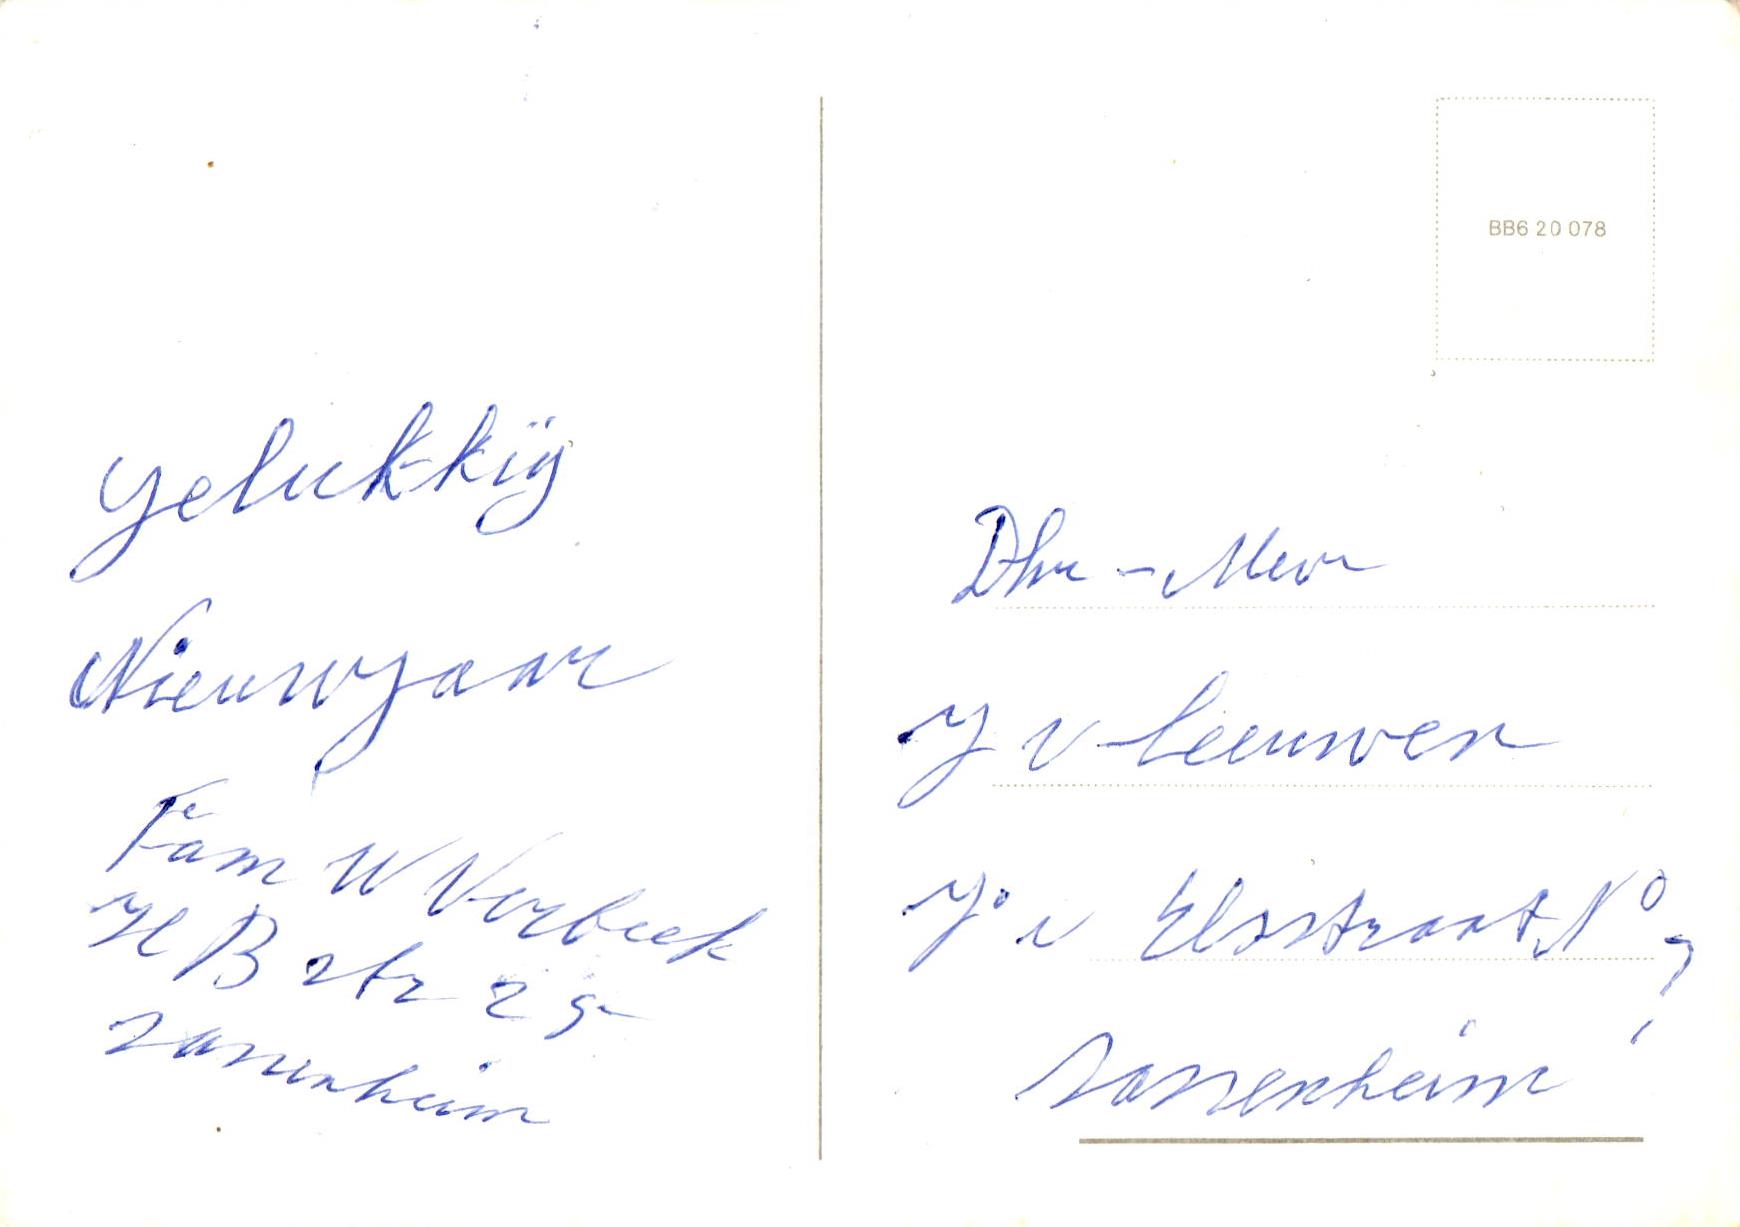 gelukkig
Nieuwjaar
Fam W Verbeek
H B str 29
Sassenheim
BB6 20 078
Dhr - Mevr
J v Leeuwen
J. v Elsstraat No 7
Sassenheim